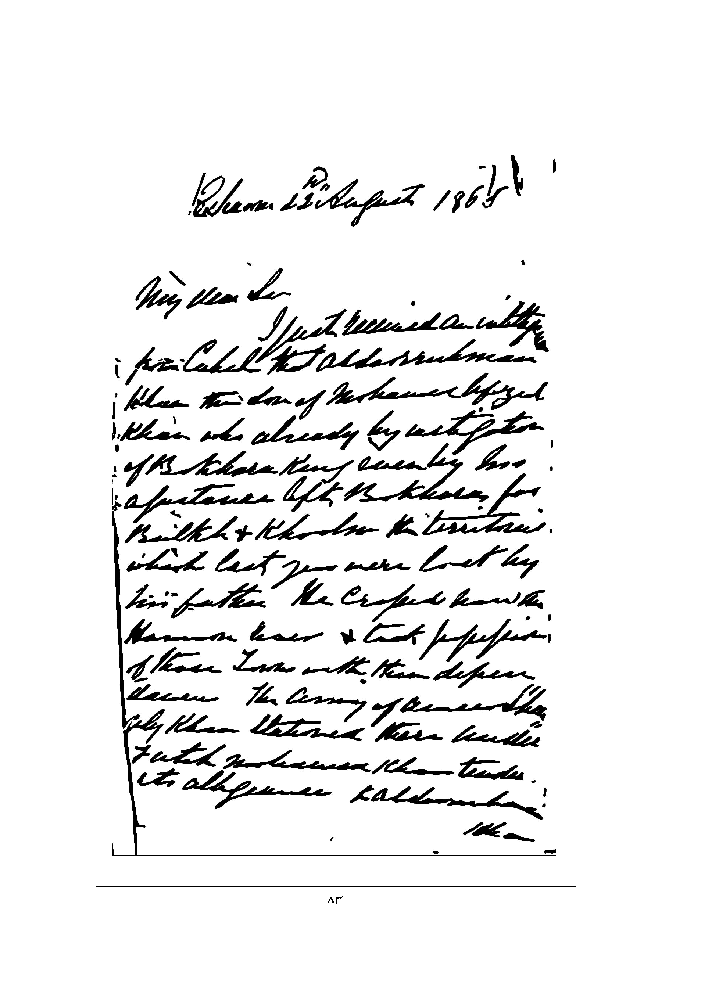 Peshawar 22nd August 1865
My dear Sir
I just received an
from Cabul that Abdoorruhman
Khan the son of Mohamed Afzul
Khan who already by instigation
of Bokhara King
Bokhara for
Bulkh & Khoolm the territories
which last year were lost by
his father He crossed now the
River & took possession
of those Towns with their depen
dances The army of Ameer Sher
Aly Khan stationed there under
Futeh Mohamed Khan tender
its allegiance to Abdoorruhman
Khan
٨٣